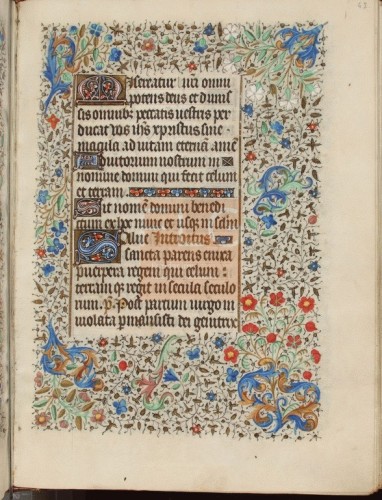 Misereatur n̄ri omni
potens deus et dimis
sis omnib: peccatis vestris per
ducat vos ihs xpristus sine
macula ad vitam eternā amē
Adiutorium nostrum in
nomine domini qui fecit celum
et terram
Sit nomē domini benedi
ctum ex hoc nunc et usqꝫ in sclm
Salve Introitus
sancta parens enixa
puerpera regem qui celum
terram qꝫ regit in secula seculo
rum. v. Post partum virgo in
violata pmansisti dei genitrix